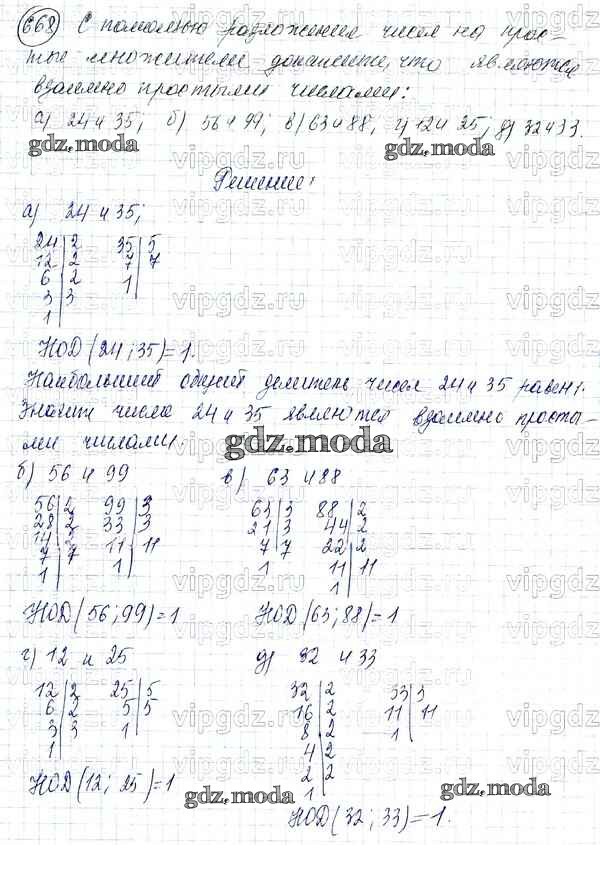 668 С помощью разложения чисел на прос-
тые множители докажите, что являются
взаимно простыми числами:
а) 24 и 35; б) 56 и 99; в) 63 и 88; г) 12 и 25; д) 32 и 33.
gdz.moda gdz.moda
Решение:
а) 24 и 35;
24 | 2 35 | 5
12 | 2 7 | 7
6 | 2 1
3 | 3
1
НОД (24; 35) = 1.
Наибольший общий делитель чисел 24 и 35 равен 1.
Значит числа 24 и 35 являются взаимно просты-
ми числами.
gdz.moda
б) 56 и 99 в) 63 и 88
56 | 2 99 | 3 63 | 3 88 | 2
28 | 2 33 | 3 21 | 3 44 | 2
14 | 2 11 | 11 7 | 7 22 | 2
7 | 7 1 1 11 | 11
1 1
НОД (56; 99) = 1 НОД (63; 88) = 1
г) 12 и 25 д) 32 и 33
12 | 2 25 | 5 32 | 2 33 | 3
6 | 2 5 | 5 16 | 2 11 | 11
3 | 3 1 8 | 2 1
1 4 | 2
2 | 2
1
НОД (12; 25) = 1
gdz.moda gdz.moda
НОД (32; 33) = 1.
vipgdz.ru